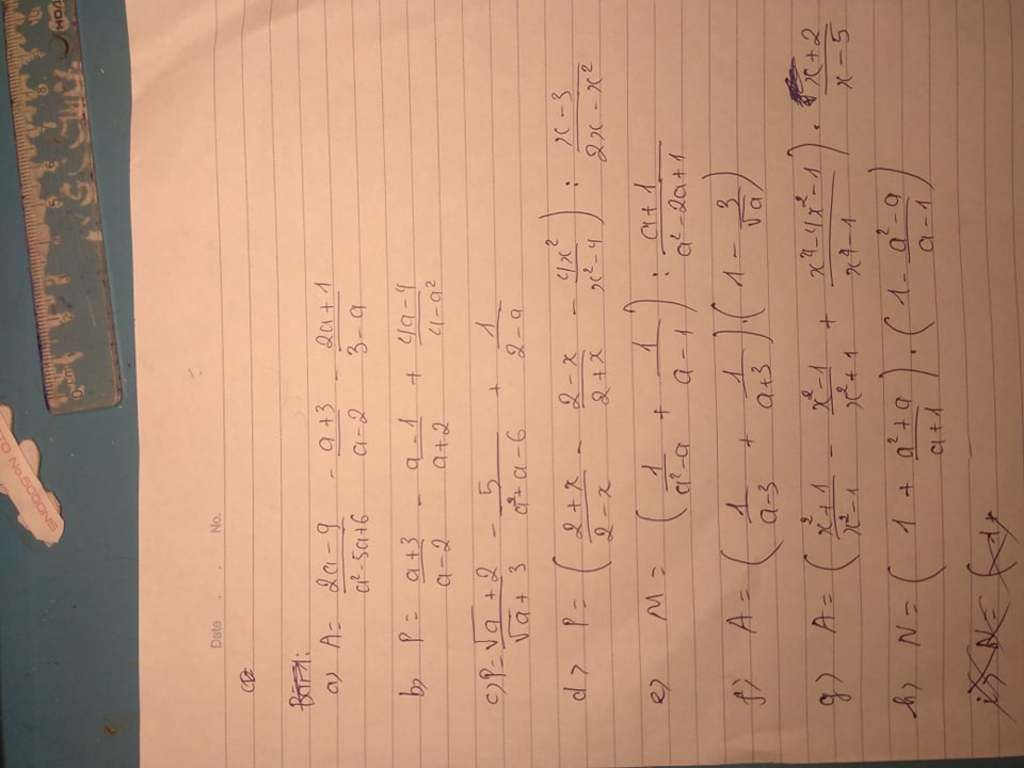 Date . . No.
a) A = (2a-9)/(a²-5a+6) - (a+3)/(a-2) - (2a+1)/(3-a)
b) P = (a+3)/(a-2) - (a-1)/(a+2) + (4a-4)/(4-a²)
c) P = (√a+2)/(√a+3) - 5/(a²+a-6) + 1/(2-a)
d) P = ((2+x)/(2-x) - (2-x)/(2+x) - 4x²/(x²-4)) : (x-3)/(2x-x²)
e) M = (1/(a²-a) + 1/(a-1)) : (a+1)/(a²-2a+1)
f) A = (1/(a-3) + 1/(a+3)) . (1 - 3/√a)
g) A = ((x²+1)/(x²-1) - (x²-1)/(x²+1) + (x⁴-4x²-1)/(x⁴-1)) . (x+2)/(x-5)
h) N = (1 + (a²+a)/(a+1)) . (1 - (a²-a)/(a-1))